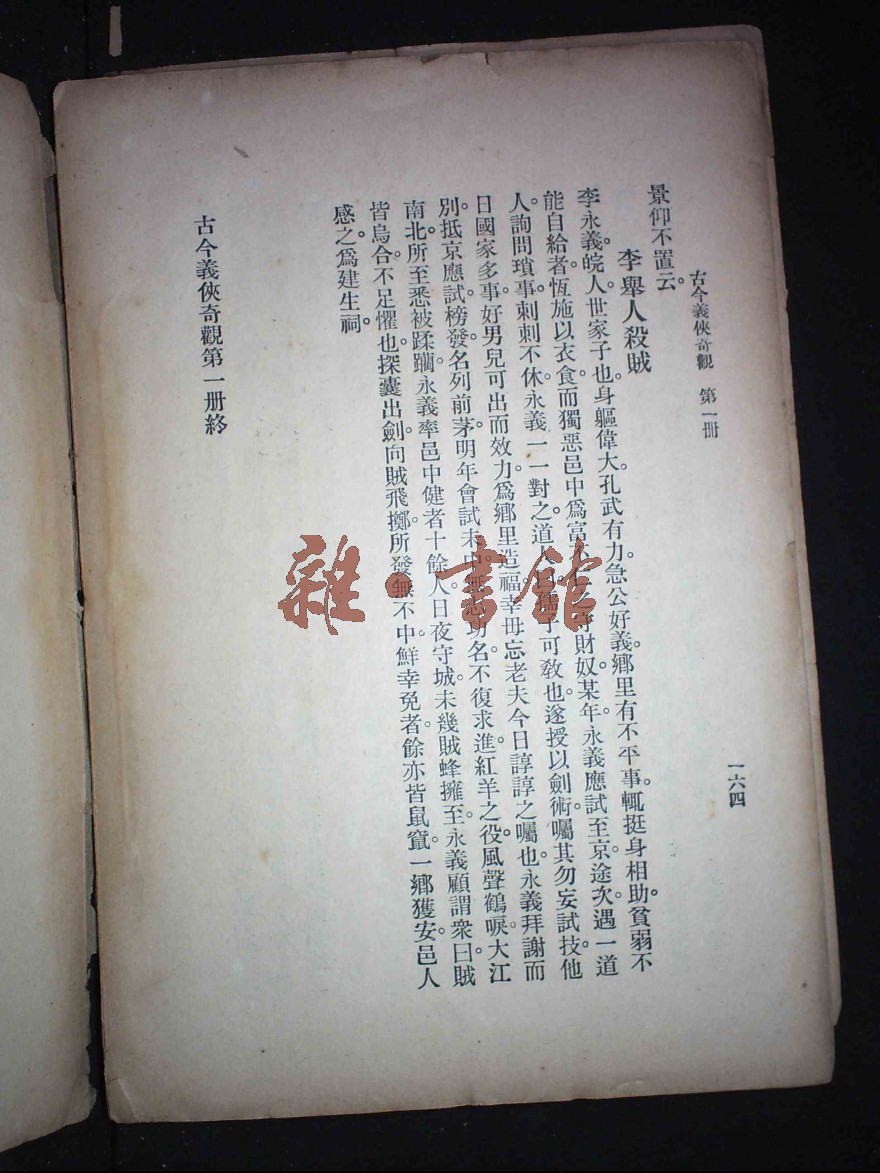 古今義俠奇觀　第一册
一六四
景仰不置云。
李舉人殺賊
李永義。皖人。世家子也。身軀偉大。孔武有力。急公好義。鄉里有不平事。輒挺身相助。貧弱不
能自給者。恆施以衣食。而獨惡邑中爲富不之守財奴。某年。永義應試至京。途次。遇一道
人。詢問瑣事。刺刺不休。永義一一對之。道人曰。孺子可敎也。遂授以劍術。囑其勿妄試技。他
日國家多事。好男兒可出而效力。爲鄉里造福。幸毋忘老夫今日諄諄之囑也。永義拜謝而
別。抵京應試。榜發。名列前茅。明年會試未中。無功名。不復求進。紅羊之役。風聲鶴唳。大江
南北。所至悉被蹂躪。永義率邑中健者十餘人。日夜守城。未幾。賊蜂擁至。永義顧謂衆曰。賊
皆烏合。不足懼也。探囊出劍。向賊飛擲。所發無不中。鮮幸免者。餘亦皆鼠竄。一鄉獲安。邑人
感之。爲建生祠。
古今義俠奇觀第一册終
雜·書館